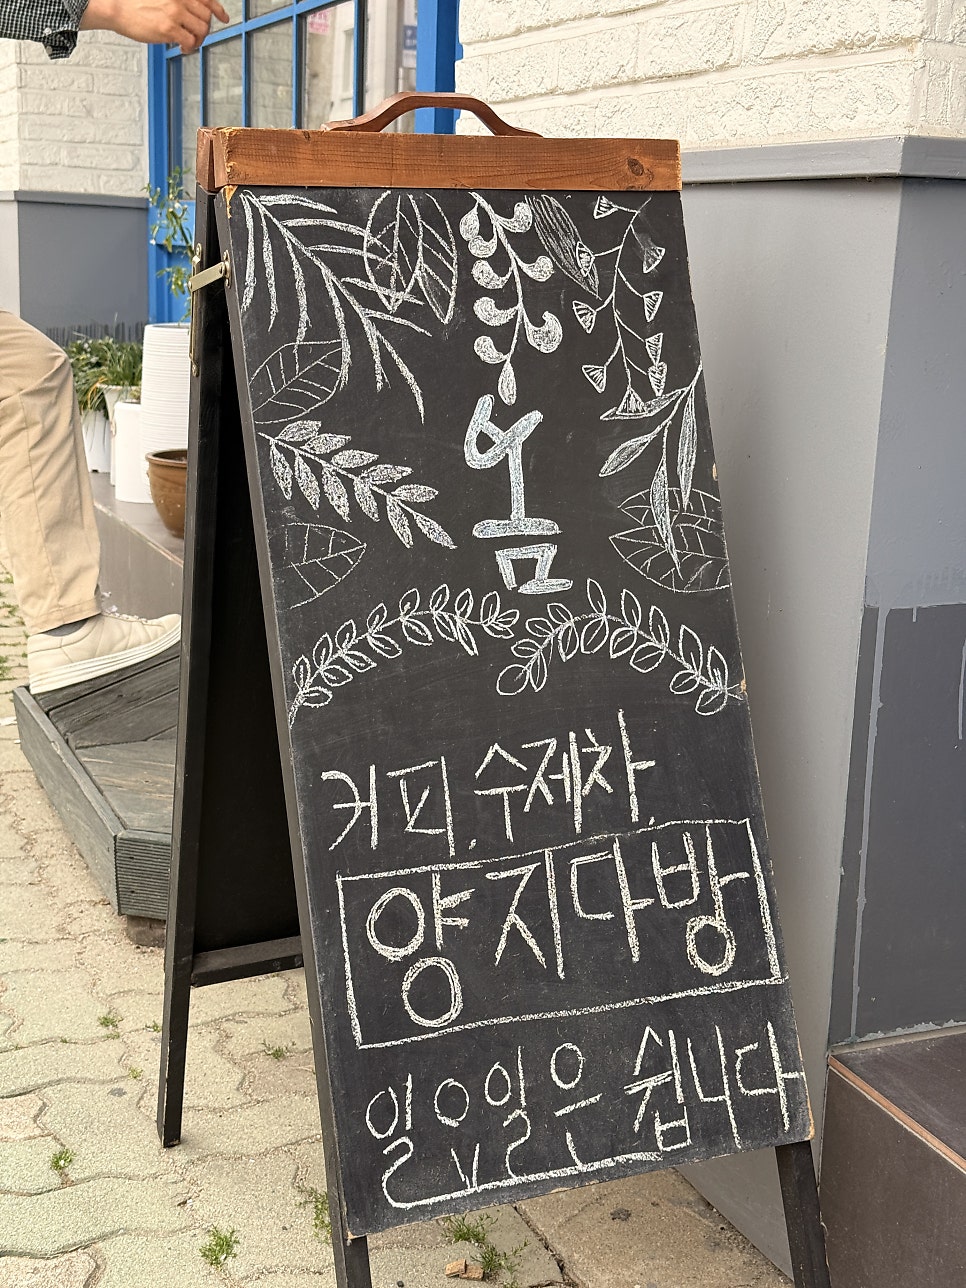 숨
커피, 수제차,
양지다방
일요일은 쉽니다